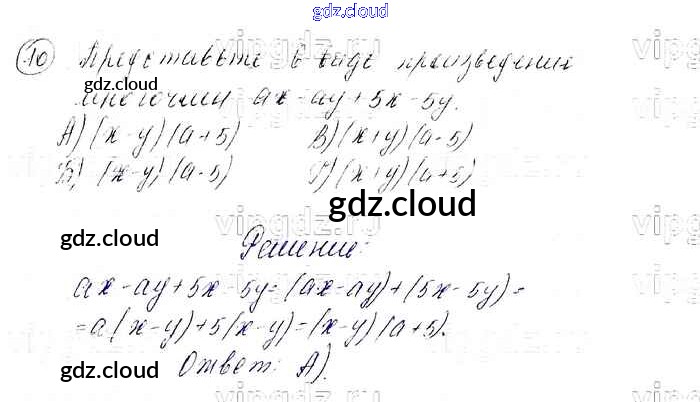 gdz.cloud
10 Представьте в виде произведения
многочлен ax-ay+5x-5y.
А) (x-y)(a+5) В) (x+y)(a-5)
Б) (x-y)(a-5) Г) (x+y)(a+5)
gdz.cloud
gdz.cloud
gdz.cloud
Решение:
ax-ay+5x-5y=(ax-ay)+(5x-5y)=
=a(x-y)+5(x-y)=(x-y)(a+5).
gdz.cloud Ответ: А).
gdz.cloud
vipgdz.ru